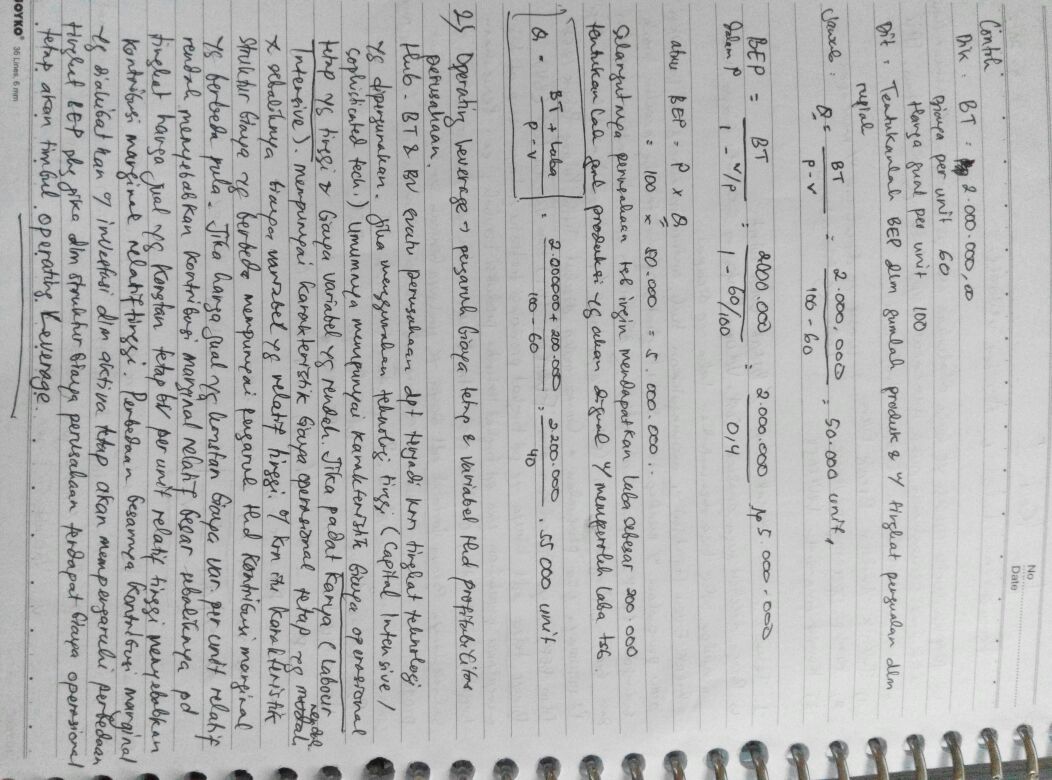 No
Date
Contoh
Dik : BT : 2.000.000,00
Biaya per unit 60
Harga jual per unit 100
Dit : Tentukanlah BEP dlm jumlah produk & tingkat penjualan dlm
rupiah
Jawab : Q = BT / P - V = 2.000.000 / 100 - 60 = 50.000 unit,
BEP dalam P = BT / 1 - V/P = 2000.000 / 1 - 60/100 = 2.000.000 / 0,4 Rp 5 000.000
atau BEP = P x Q
= 100 x 50.000 = 5.000.000..
Selanjutnya perusahaan tsb ingin mendapatkan laba sebesar 200.000
tentukan produksi yg akan dijual memperoleh laba tsb.
Q = BT + Laba / P - V = 2.000000 + 200.000 / 100 - 60 = 2.200.000 / 40 = 55 000 unit
2) Operating leverage → pengaruh biaya tetap & variabel thd profitabilitas
perusahaan.
Hub. BT & BV suatu perusahaan dpt terjadi krn tingkat teknologi
yg dipergunakan. Jika menggunakan teknologi tinggi (Capital Intensive /
sophisticated tech.) Umumnya mempunyai karakteristik biaya operasional
tetap yg tinggi & biaya variabel yg rendah. Jika padat karya (Labour
Intensive). mempunyai karakteristik biaya operasional tetap yg rendah
& sebaliknya biaya variabel yg relatif tinggi. krn itu karakteristik
struktur biaya yg berbeda mempunyai pengaruh thd kontribusi marginal
yg berbeda pula. Jika harga jual yg konstan biaya var. per unit relatif
rendah menyebabkan kontribusi marginal relatif besar sebaliknya pd
tingkat harga jual yg konstan tetap BV per unit relatif tinggi menyebabkan
kontribusi marginal relatif tinggi. Perbedaan besarnya kontribusi marginal
yg diakibatkan investasi dlm aktiva tetap akan mempengaruhi perbedaan
tingkat BEP jika dlm struktur biaya perusahaan terdapat biaya operasional
tetap akan timbul operating Leverage.
JOYKO 36 Lines, 6 mm